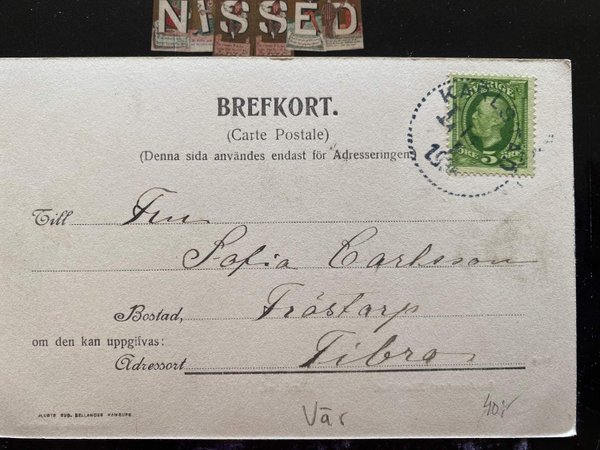 NISSED
BREFKORT.
(Carte Postale)
(Denna sida användes endast för Adresseringen
SVERIGE
5 ÖRE
Till Fru
Sofia Carlsson
Bostad, Fröstarp
om den kan uppgifvas:
Adressort Tibro
Vår
40:-